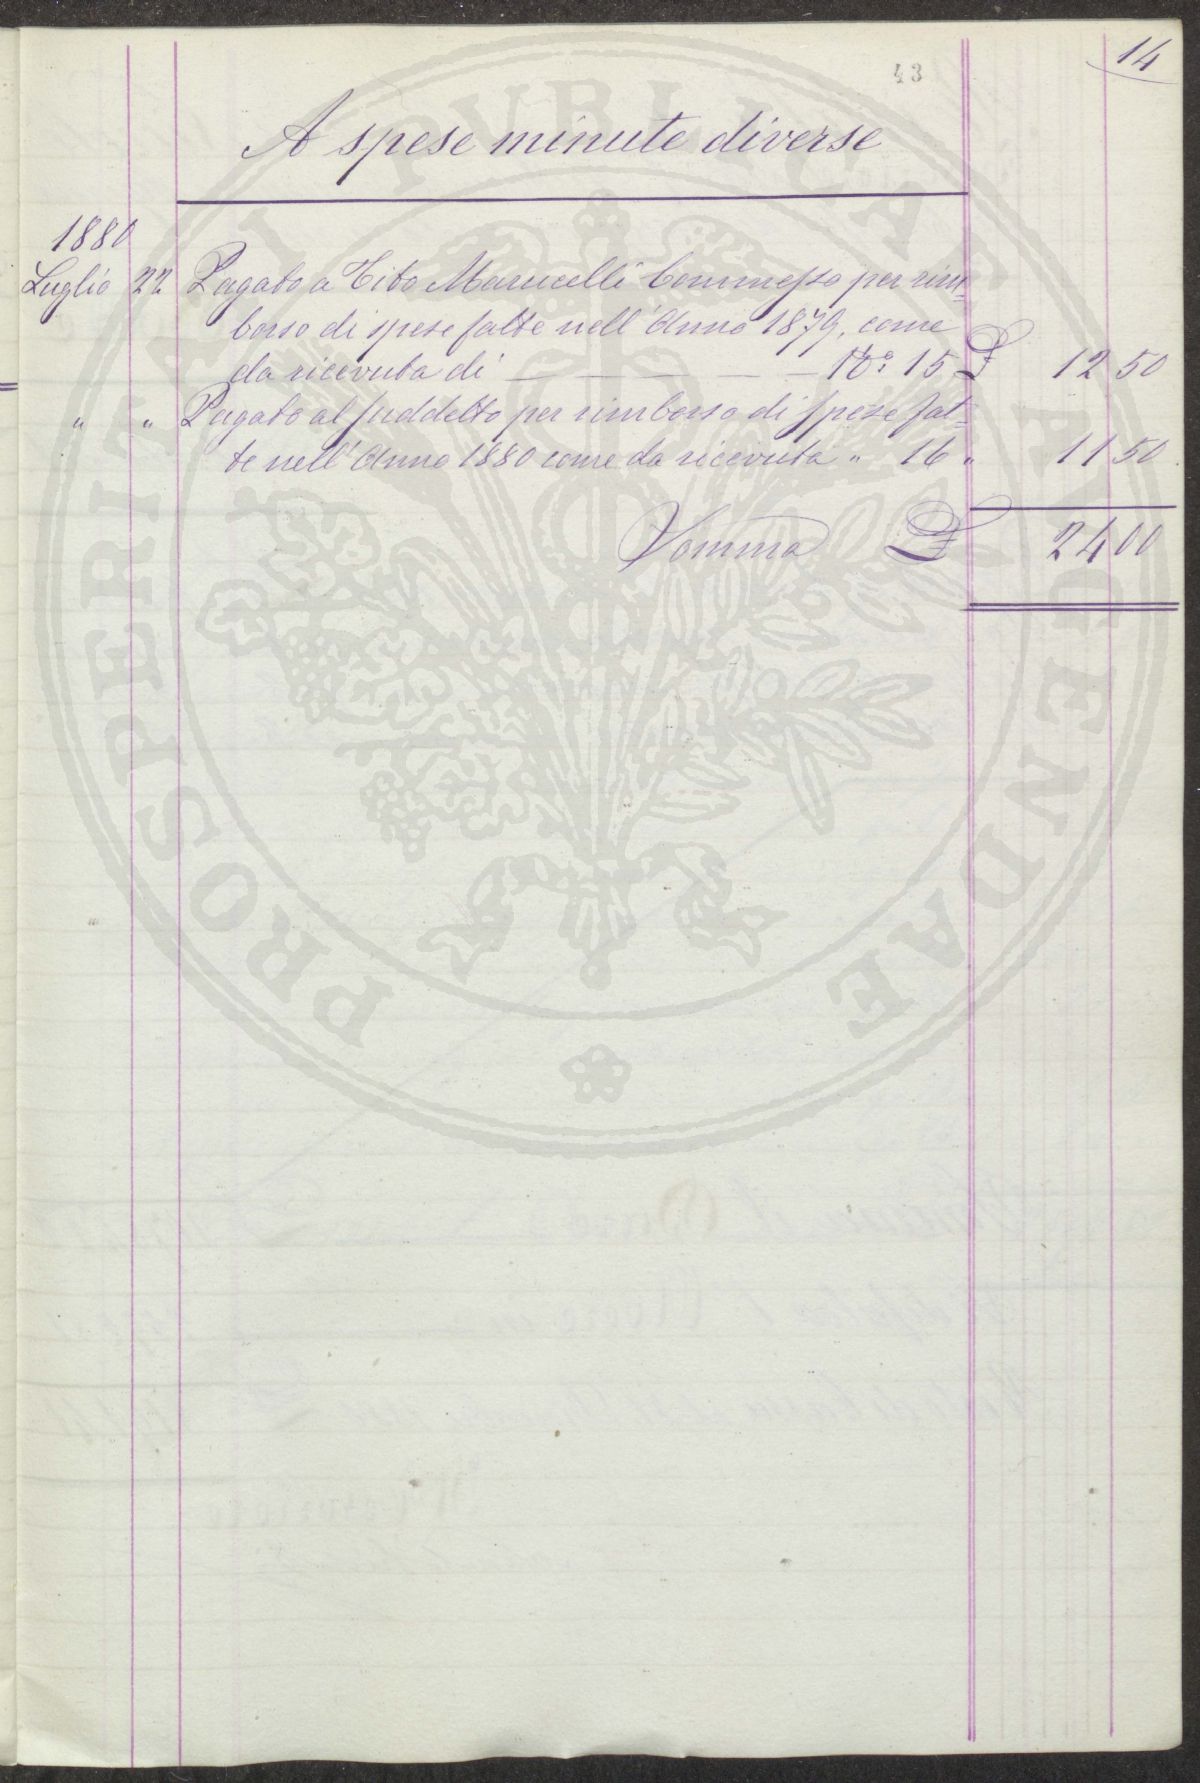 14
43
A spese minute diverse
1880
Luglio 22 Pagato a Tito Marucelli Commesso per rim=
borso di spese fatte nell'Anno 1879, come
da ricevuta di — N.º 15 £ 12 50
" " Pagato al suddetto per rimborso di spese fat=
te nell'Anno 1880 come da ricevuta " 16 " 11 50
Somma £ 24 00
PROSPERITATI PVBLICAE AVGENDAE